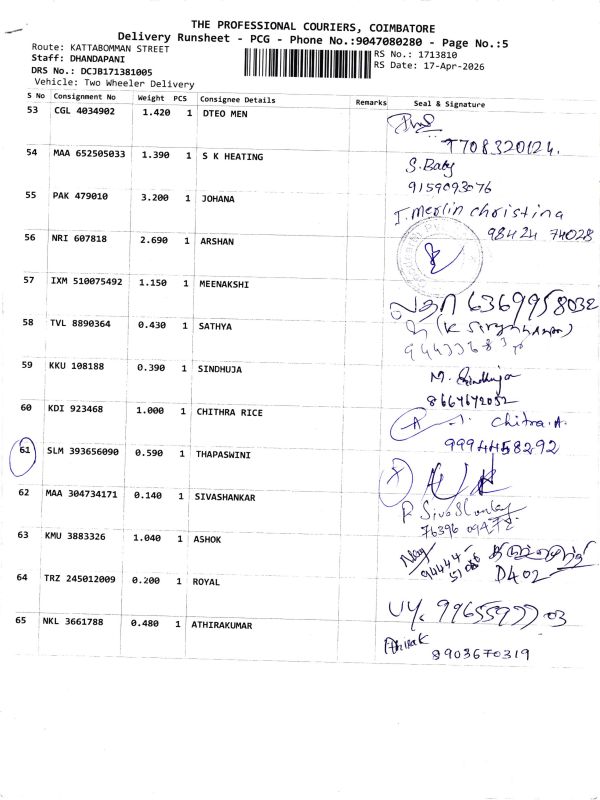 THE PROFESSIONAL COURIERS, COIMBATORE
Delivery Runsheet - PCG - Phone No.:9047080280 - Page No.:5
Route: KATTABOMMAN STREET
RS No.: 1713810
Staff: DHANDAPANI
RS Date: 17-Apr-2026
DRS No.: DCJB171381005
Vehicle: Two Wheeler Delivery
S No Consignment No Weight PCS Consignee Details Remarks Seal & Signature
53 CGL 4034902 1.420 1 DTEO MEN
7708320124.
54 MAA 652505033 1.390 1 S K HEATING
S. Baby
9159093076
55 PAK 479010 3.200 1 JOHANA
J. Merlin christina
98424 74028
56 NRI 607818 2.690 1 ARSHAN
57 IXM 510075492 1.150 1 MEENAKSHI
லதா 6369958032
58 TVL 8890364 0.430 1 SATHYA
59 KKU 108188 0.390 1 SINDHUJA
M. Sindhuja
8667672052
60 KDI 923468 1.000 1 CHITHRA RICE
Chitra.A.
9994458292
61 SLM 393656090 0.590 1 THAPASWINI
62 MAA 304734171 0.140 1 SIVASHANKAR
76396 09472
63 KMU 3883326 1.040 1 ASHOK
94444
D402
64 TRZ 245012009 0.200 1 ROYAL
65 NKL 3661788 0.480 1 ATHIRAKUMAR
8903670319